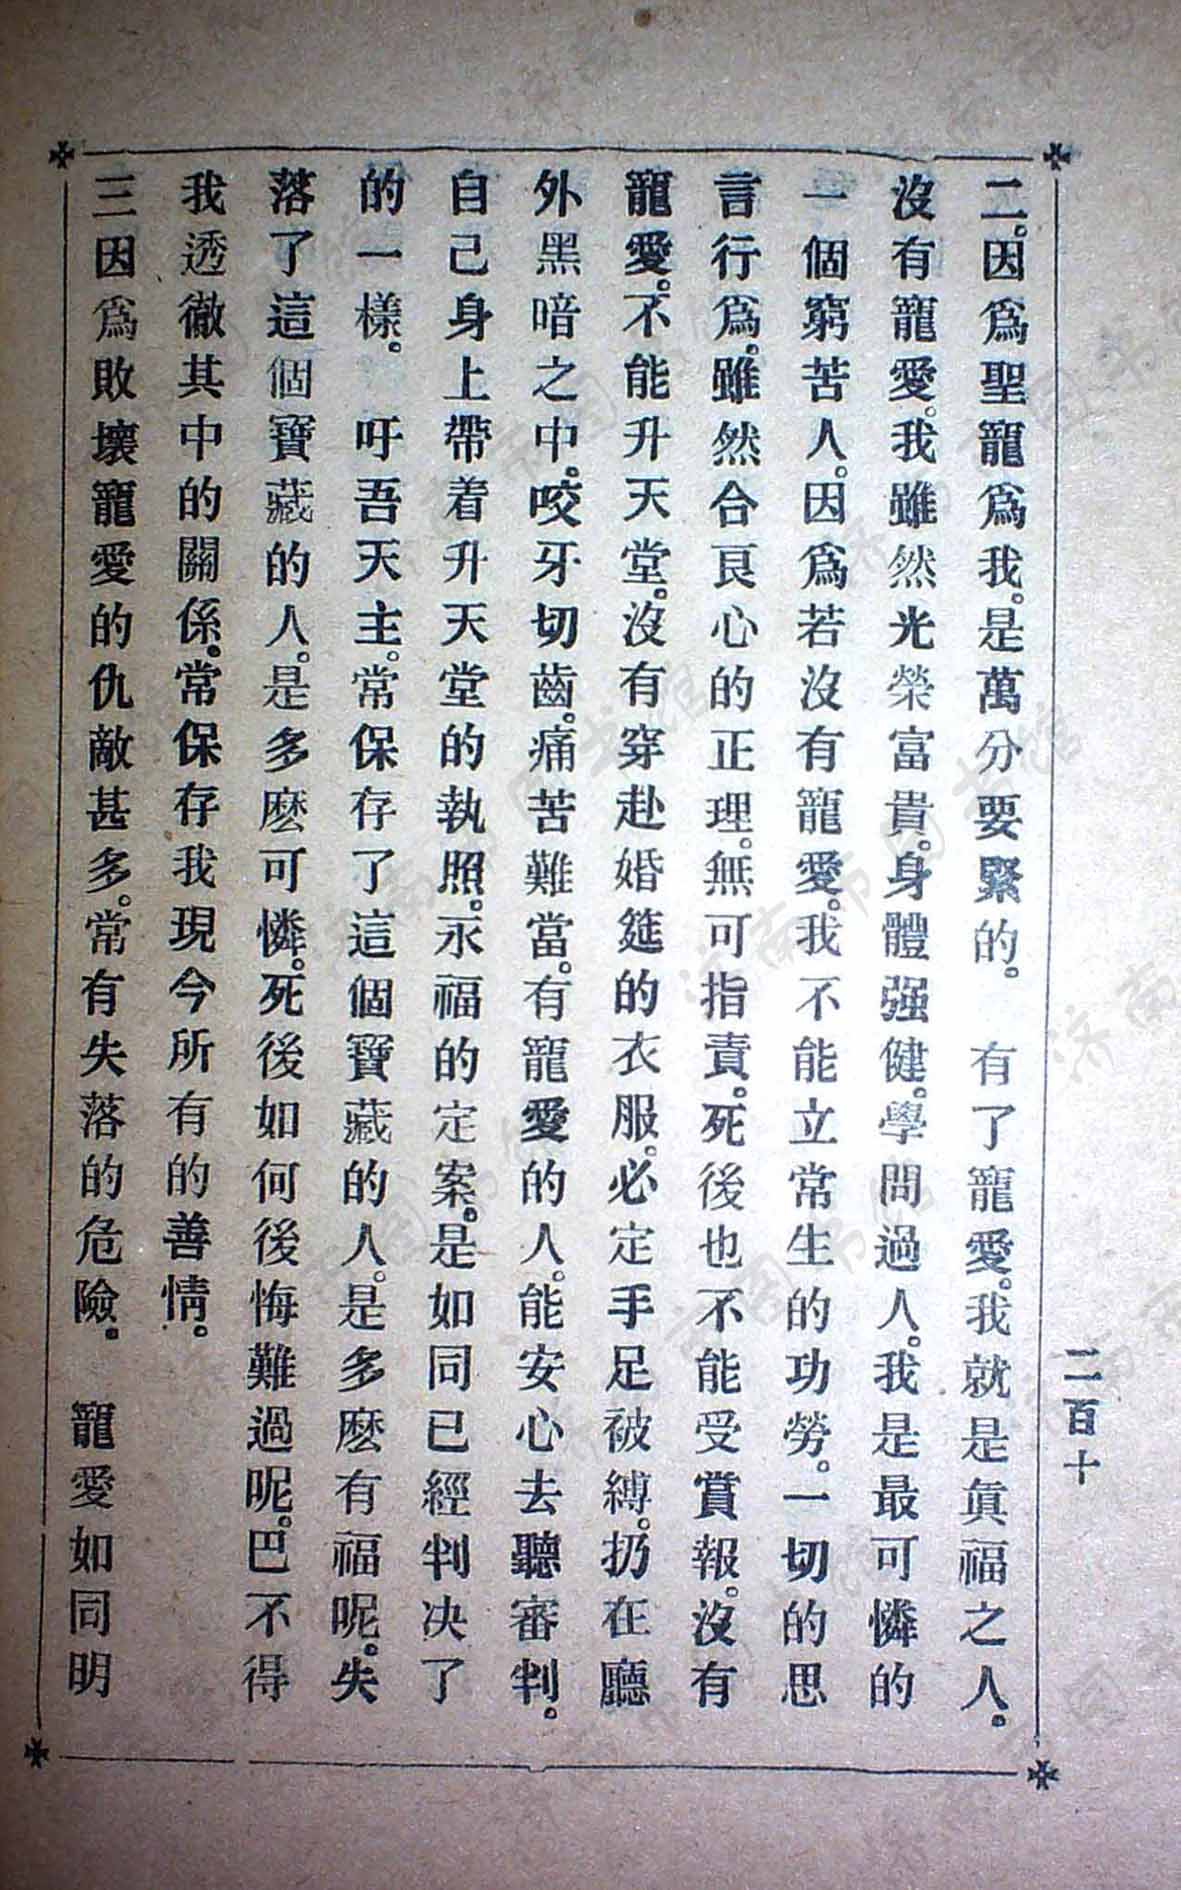 二。因爲聖寵爲我。是萬分要緊的。　有了寵愛。我就是眞福之人。
沒有寵愛。我雖然光榮富貴。身體强健。學問過人。我是最可憐的
一個窮苦人。因爲若沒有寵愛。我不能立常生的功勞。一切的思
言行爲。雖然合良心的正理。無可指責。死後也不能受賞報。沒有
寵愛。不能升天堂。沒有穿赴婚筵的衣服。必定手足被縛。扔在廳
外黑喑之中。咬牙切齒。痛苦難當。有寵愛的人。能安心去聽審判。
自己身上帶着升天堂的執照。永福的定案。是如同已經判决了
的一樣。　吁吾天主。常保存了這個寶藏的人。是多麽有福呢。失
落了這個寶藏的人。是多麽可憐。死後如何後悔難過呢。巴不得
我透徹其中的關係。常保存我現今所有的善情。
三因爲敗壞寵愛的仇敵甚多。常有失落的危險。　寵愛如同明
二百十
济南市图书馆